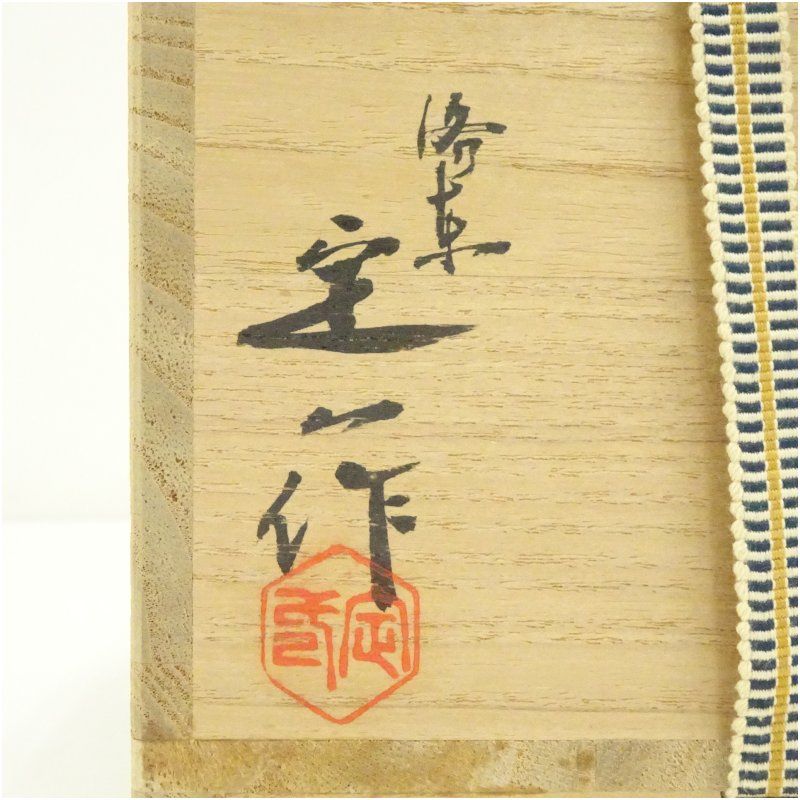 洛東
定一作